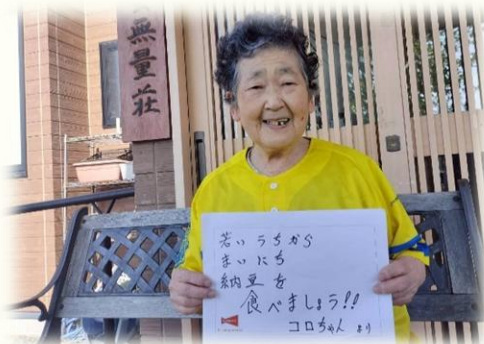 無量荘
若いうちから
まいにち
納豆を
食べましょう!!
コロちゃん より